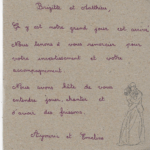 Brigitte et Matthieu,
Il y est notre grand jour est arrivé
Nous tenons à vous remercier pour
votre investissement et votre
accompagnement.
Nous avons hâte de vous
entendre pour chanter et
d'avoir des frissons.
Aymeric et Emeline